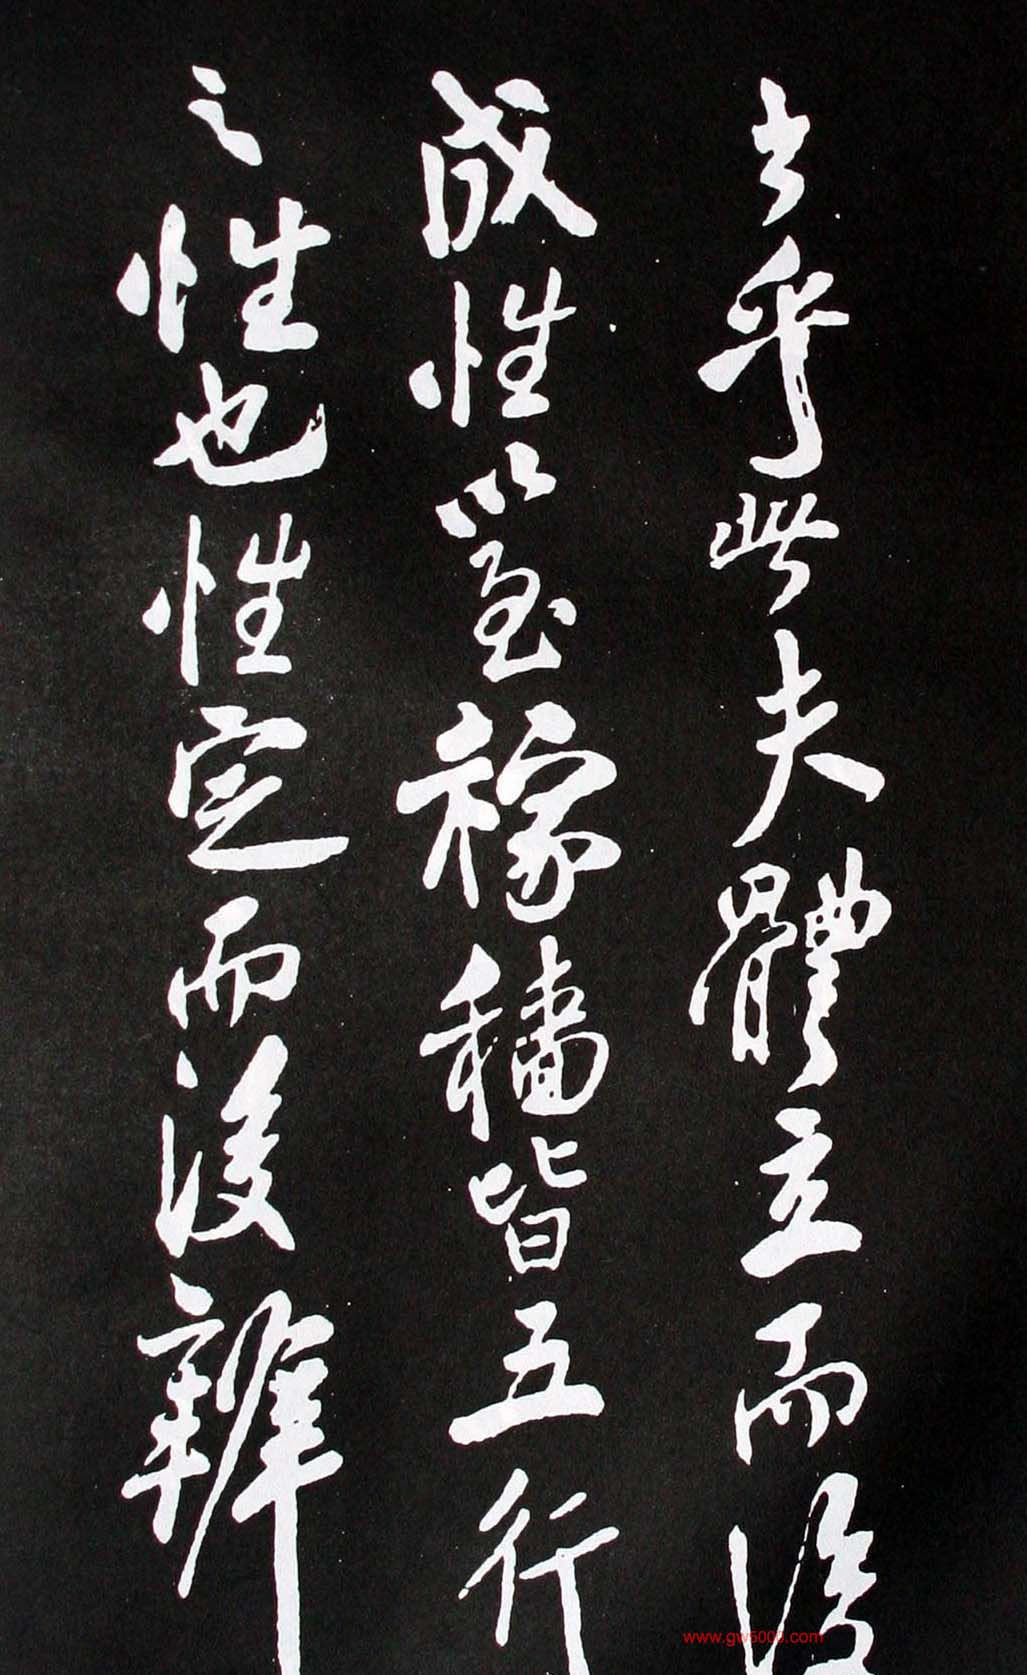 出乎此夫體立而後
成性以至稼穡皆五行
之性也性定而後辨
www.gw5000.com